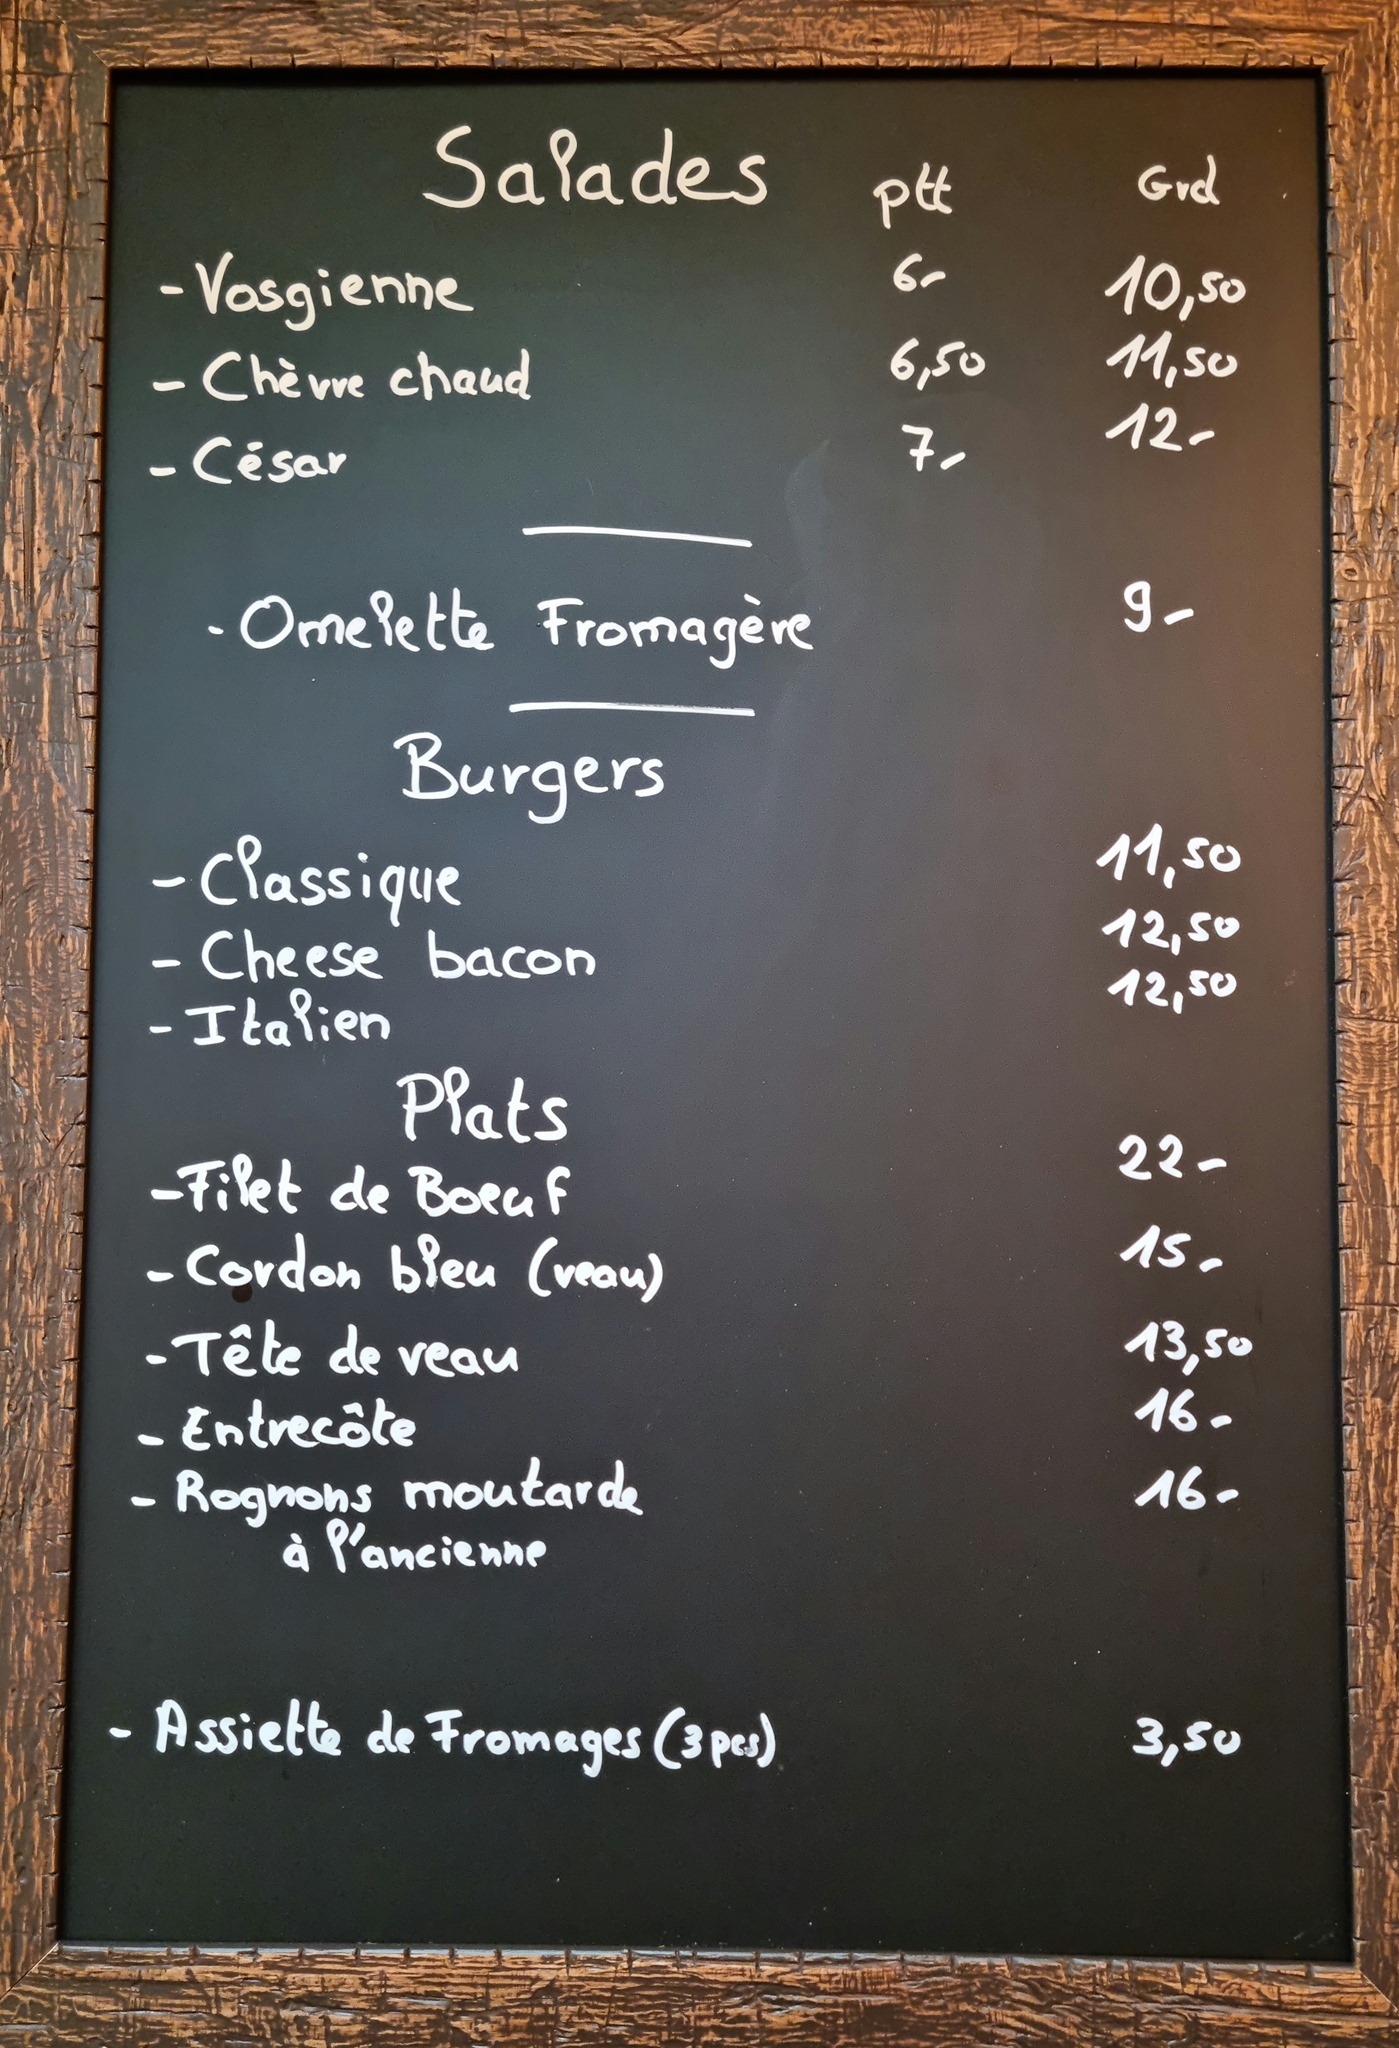 Salades ptt Grd
- Vosgienne 6- 10,50
- Chèvre chaud 6,50 11,50
- César 7- 12-
- Omelette Fromagère 9-
Burgers
- Classique 11,50
- Cheese bacon 12,50
- Italien 12,50
Plats
- Filet de Boeuf 22-
- Cordon bleu (veau) 15-
- Tête de veau 13,50
- Entrecôte 16-
- Rognons moutarde 16-
à l'ancienne
- Assiette de Fromages (3pcs) 3,50